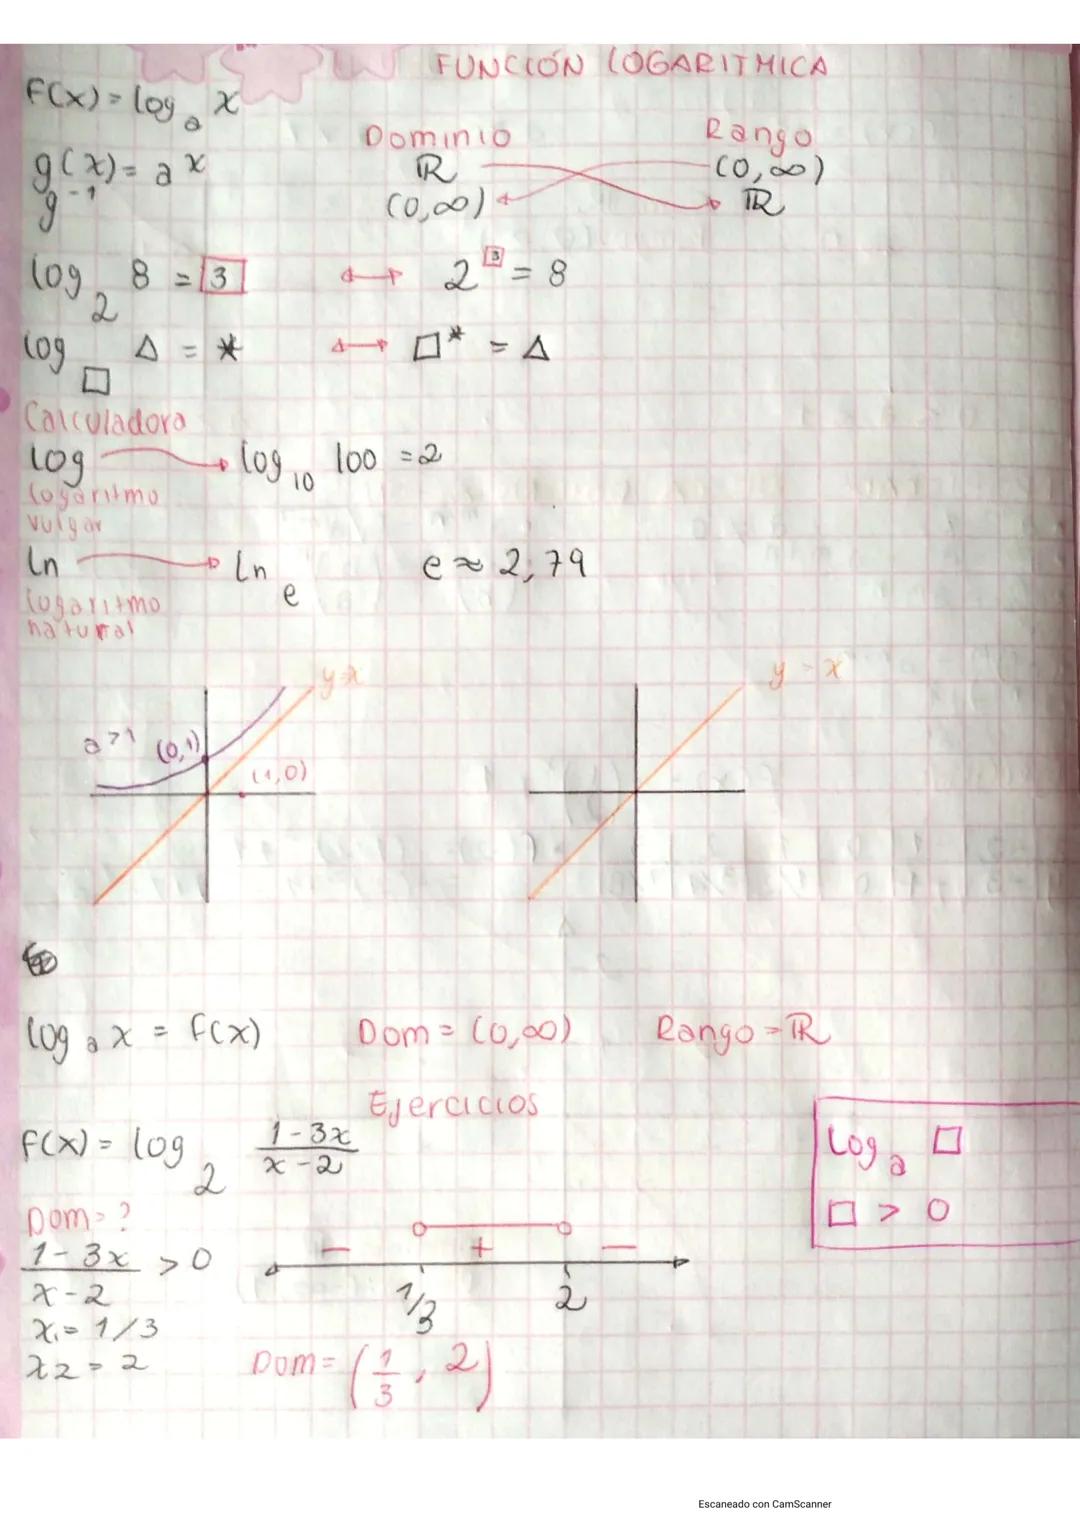 FUNCIÓN LOGARITMICA
F(x) = log a x
Dominio Rango
g(x) = a^x ℝ (0,∞)
g^-1 (0,∞) ℝ
log 2 8 = 3 ↔ 2^3 = 8
log □ Δ = * ↔ □* = Δ
Calculadora
log → log 10 100 = 2
logaritmo
vulgar
ln → ln e e ≈ 2,79
logaritmo
natural
y=x y = x
a>1 (0,1)
(1,0)
log a x = f(x) Dom = (0,∞) Rango = ℝ
Ejercicios
F(x) = log 2 (1-3x)/(x-2)
log a □
□ > 0
Dom = ?
(1-3x)/(x-2) > 0
− + −
1/3 2
x1 = 1/3
x2 = 2
Dom = (1/3, 2)
Escaneado con CamScanner